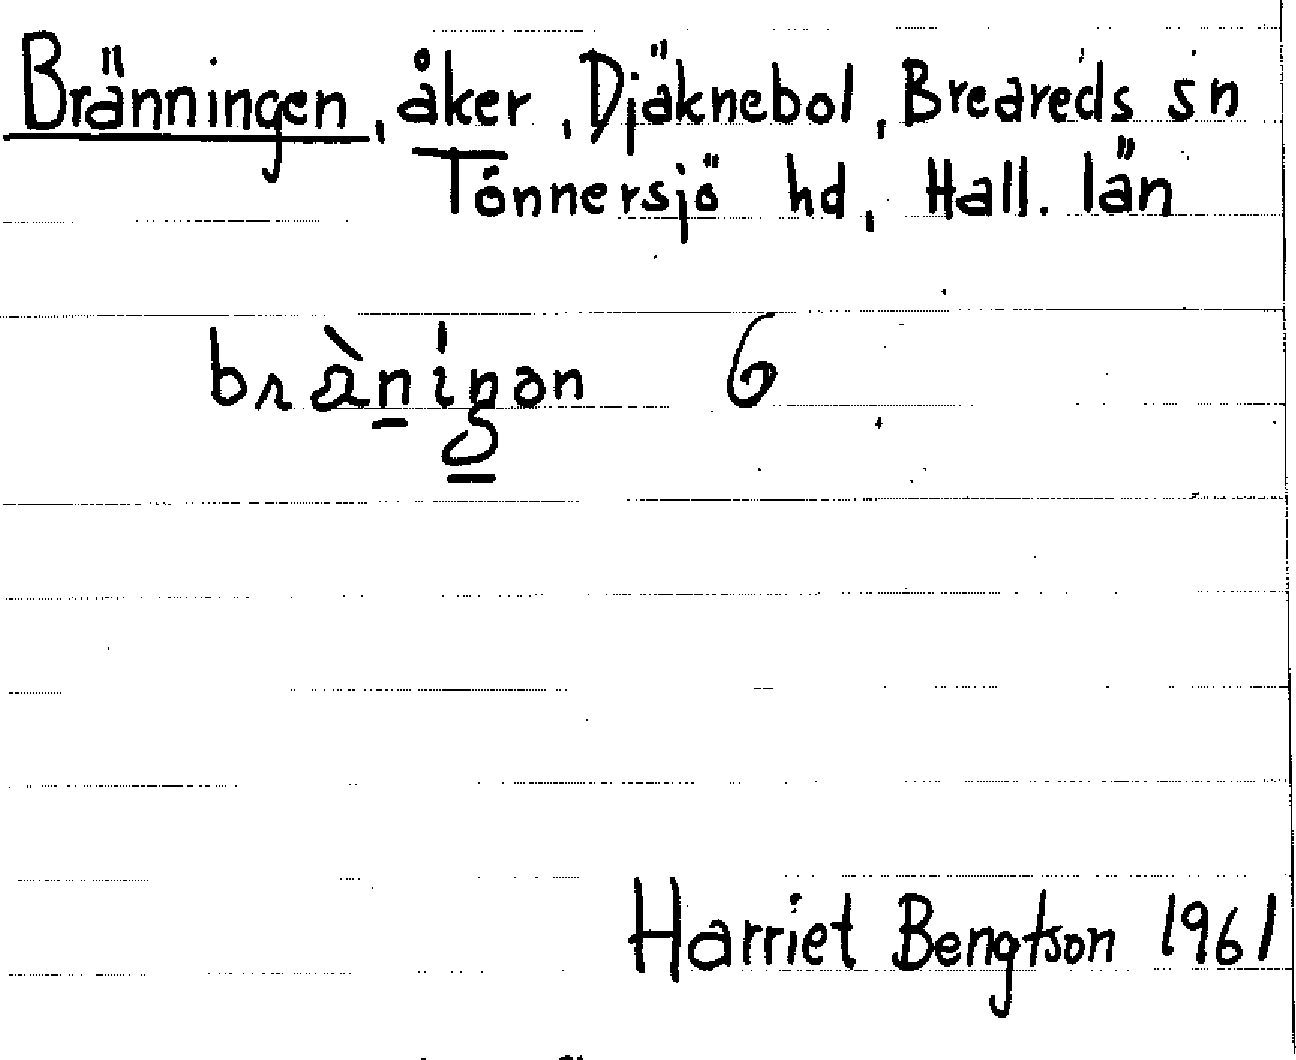 Bränningen, åker, Djäknebol, Breareds sn
Tönnersjö hd, Hall. län
6
Harriet Bengtson 1961